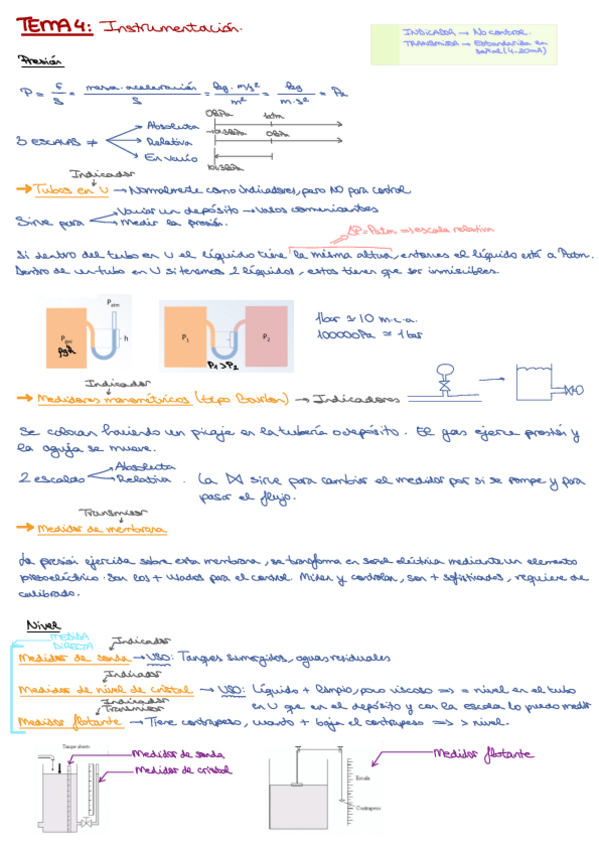 TEMA 4: Instrumentación.
INDICADOR → No control.
TRANSMISOR → Estandariza en señal (4-20mA)
Presión
P = F/S = masa · aceleración/S = kg · m/s²/m² = kg/m·s² = Pa
3 ESCALAS ≠
Absoluta
Relativa
En vacío
0 BPa
1atm
0BPa
Indicador
→ Tubos en U → Normalmente como indicadores, pero NO para control
Sirve para
Vaciar un depósito → vasos comunicantes
Medir la presión.
ΔP = Patm ⇒ escala relativa
Si dentro del tubo en U el líquido tiene la misma altura, entonces el líquido está a Patm.
Dentro de un tubo en U si tenemos 2 líquidos, estos tienen que ser inmiscibles.
P atm
P gas
ρgh
h
P1
P2
P1 > P2
1bar ≃ 10 m.c.a.
100000Pa ≃ 1bar
Indicador
→ Medidores manométricos (tipo Bourdon) → Indicadores
Se colocan haciendo un picaje en la tubería o depósito. El gas ejerce presión y
la aguja se mueve.
2 escalas
Absoluta
Relativa
. La ⋈ sirve para cambiar el medidor por si se rompe y para
parar el flujo.
Transmisor
→ Medidor de membrana
La presión ejercida sobre esta membrana, se transforma en señal eléctrica mediante un elemento
piezoeléctrico. Son los + usados para el control. Miden y controlan, son + sofisticados, requiere de
calibrado.
Nivel
MEDIDA DIRECTA
Indicador
Medidor de sonda → USO: Tanques sumergidos, aguas residuales
Indicador
Medidor de nivel de cristal → USO: Líquido + limpio, poco viscoso ⇒ = nivel en el tubo
en U que en el depósito y con la escala lo puedo medir
Indicador
Transmisor
Medidor flotante → Tiene contrapeso, cuanto + baja el contrapeso ⇒ > nivel.
Tanque abierto
Medidor de sonda
Medidor de cristal
Medidor flotante
Escala
Contrapeso